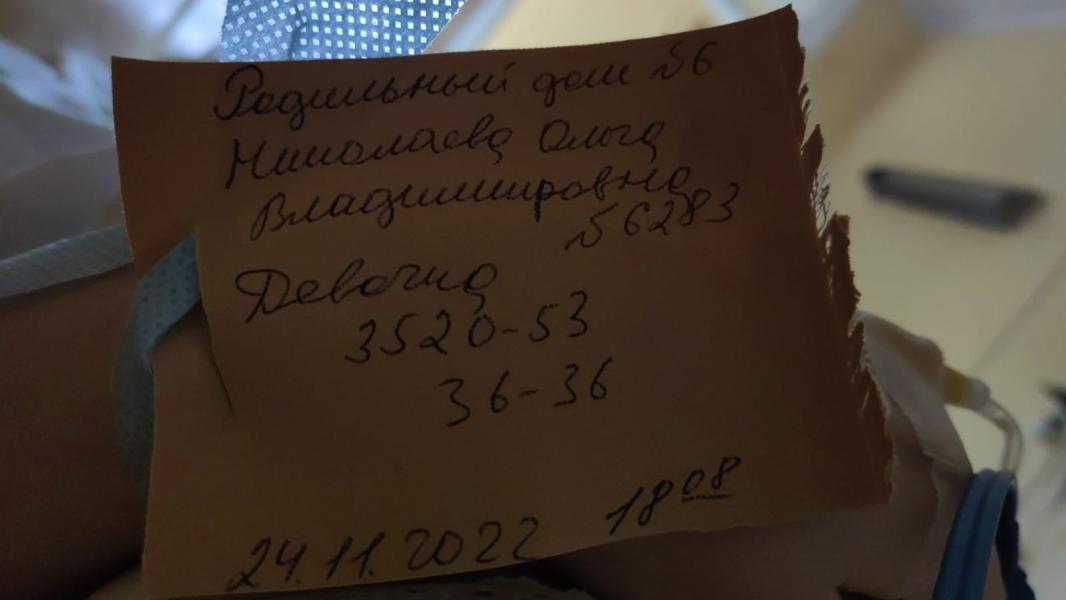 Родильный дом №6
Николаева Ольга
Владимировна
№6283
Девочка
3520-53
36-36
24.11.2022 18 08